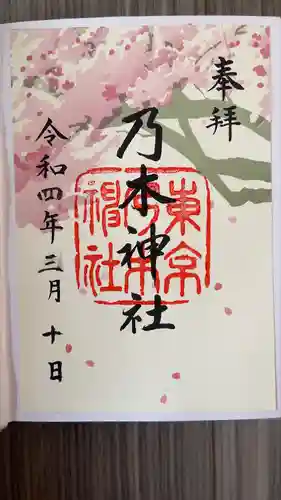 奉拝
乃木神社
東京乃木神社
令和四年三月十日